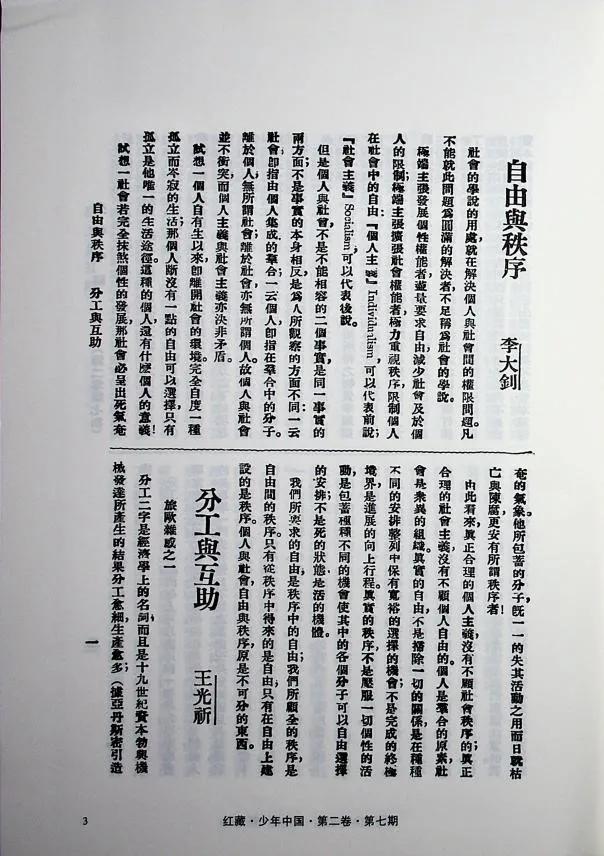 自由與秩序
李大釗
社會的學說的用處就在解決個人與社會間的權限問題。凡
不能就此問題爲圓滿的解決者，不足稱爲社會的學說。
極端主張發展個性權能者，盡量要求自由，減少社會及於個
人的限制；極端主張擴張社會權能者，極力重視秩序，限制個人
在社會中的自由。『個人主義』Individualism，可以代表前說；
『社會主義』Socialism，可以代表後說。
但是個人與社會，不是不能相容的二個事實，是同一事實的
兩方面；不是事實的本身相反，是爲人所觀察的方面不同。一云
社會，即指由個人集成的羣合；一云個人，即指在羣合中的分子。
離於個人，無所謂社會；離於社會，亦無所謂個人。故個人與社會
並不衝突，而個人主義與社會主義亦決非矛盾。
試想一個人自有生以來，即離開社會的環境，完全自度一種
孤立而岑寂的生活，那個人斷沒有一點的自由可以選擇，只有
孤立是他唯一的生活途徑。這種的個人，還有什麽個人的意義！
試想一社會若完全抹煞個性的發展，那社會必呈出死氣奄
自由與秩序　分工與互助
奄的氣象。他所包蓄的分子，旣一一的失其活動之用而日就枯
亡與陳腐，更安有所謂秩序者！
由此看來，眞正合理的個人主義，沒有不顧社會秩序的；眞正
合理的社會主義，沒有不顧個人自由的。個人是羣合的原素，社
會是衆異的組織。眞實的自由，不是掃除一切的關係，是在種種
不同的安排整列中保有寬裕的選擇的機會；不是完成的終極
境界，是進展的向上行程。眞實的秩序，不是壓服一切個性的活
動，是包蓄種種不同的機會使其中的各個分子可以自由選擇
的安排；不是死的狀態，是活的機體。
我們所要求的自由，是秩序中的自由；我們所顧全的秩序，是
自由間的秩序。只有從秩序中得來的是自由，只有在自由上建
設的是秩序。個人與社會，自由與秩序，原是不可分的東西。
分工與互助
王光祈
旅歐雜感之一
分工二字是經濟學上的名詞，而且是十九世紀資本勃興，機
械發達所產生的結果。分工愈細，生產愈多；（據亞丹斯密引造
一
3
红藏·少年中国·第二卷·第七期